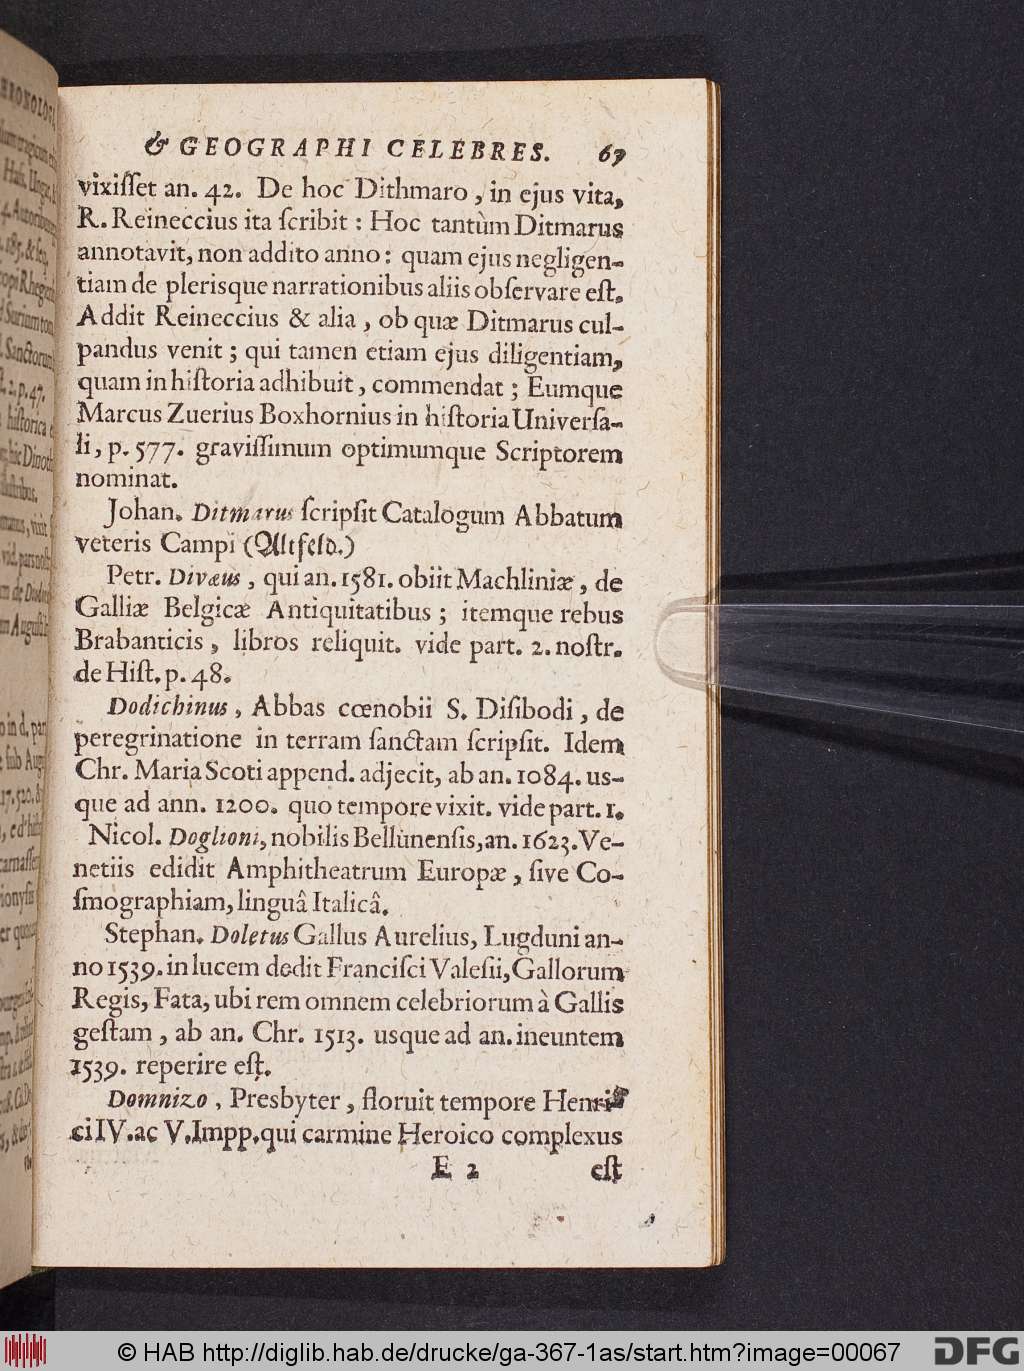 & GEOGRAPHI CELEBRES. 67
vixiſſet an. 42. De hoc Dithmaro, in ejus vita,
R. Reineccius ita ſcribit: Hoc tantùm Ditmarus
annotavit, non addito anno: quam ejus negligen-
tiam de plerisque narrationibus aliis obſervare eſt.
Addit Reineccius & alia, ob quæ Ditmarus cul-
pandus venit; qui tamen etiam ejus diligentiam,
quam in hiſtoria adhibuit, commendat; Eumque
Marcus Zuerius Boxhornius in hiſtoria Univerſa-
li, p. 577. graviſſimum optimumque Scriptorem
nominat.
Johan. Ditmarus ſcripſit Catalogum Abbatum
veteris Campi (Altfeld.)
Petr. Divæus, qui an. 1581. obiit Machliniæ, de
Galliæ Belgicæ Antiquitatibus; itemque rebus
Brabanticis, libros reliquit. vide part. 2. noſtr.
de Hiſt. p. 48.
Dodichinus, Abbas cœnobii S. Diſibodi, de
peregrinatione in terram ſanctam ſcripſit. Idem
Chr. Maria Scoti append. adjecit, ab an. 1084. us-
que ad ann. 1200. quo tempore vixit. vide part. 1.
Nicol. Doglioni, nobilis Bellùnenſis, an. 1623. Ve-
netiis edidit Amphitheatrum Europæ, ſive Co-
ſmographiam, linguâ Italicâ.
Stephan. Doletus Gallus Aurelius, Lugduni an-
no 1539. in lucem dedit Franciſci Valeſii, Gallorum
Regis, Fata, ubi rem omnem celebriorum à Gallis
geſtam, ab an. Chr. 1513. usque ad an. ineuntem
1539. reperire eſt.
Domnizo, Presbyter, floruit tempore Henri-
ci IV. ac V. Impp. qui carmine Heroico complexus
E 2 eſt
© HAB http://diglib.hab.de/drucke/ga-367-1as/start.htm?image=00067
DFG